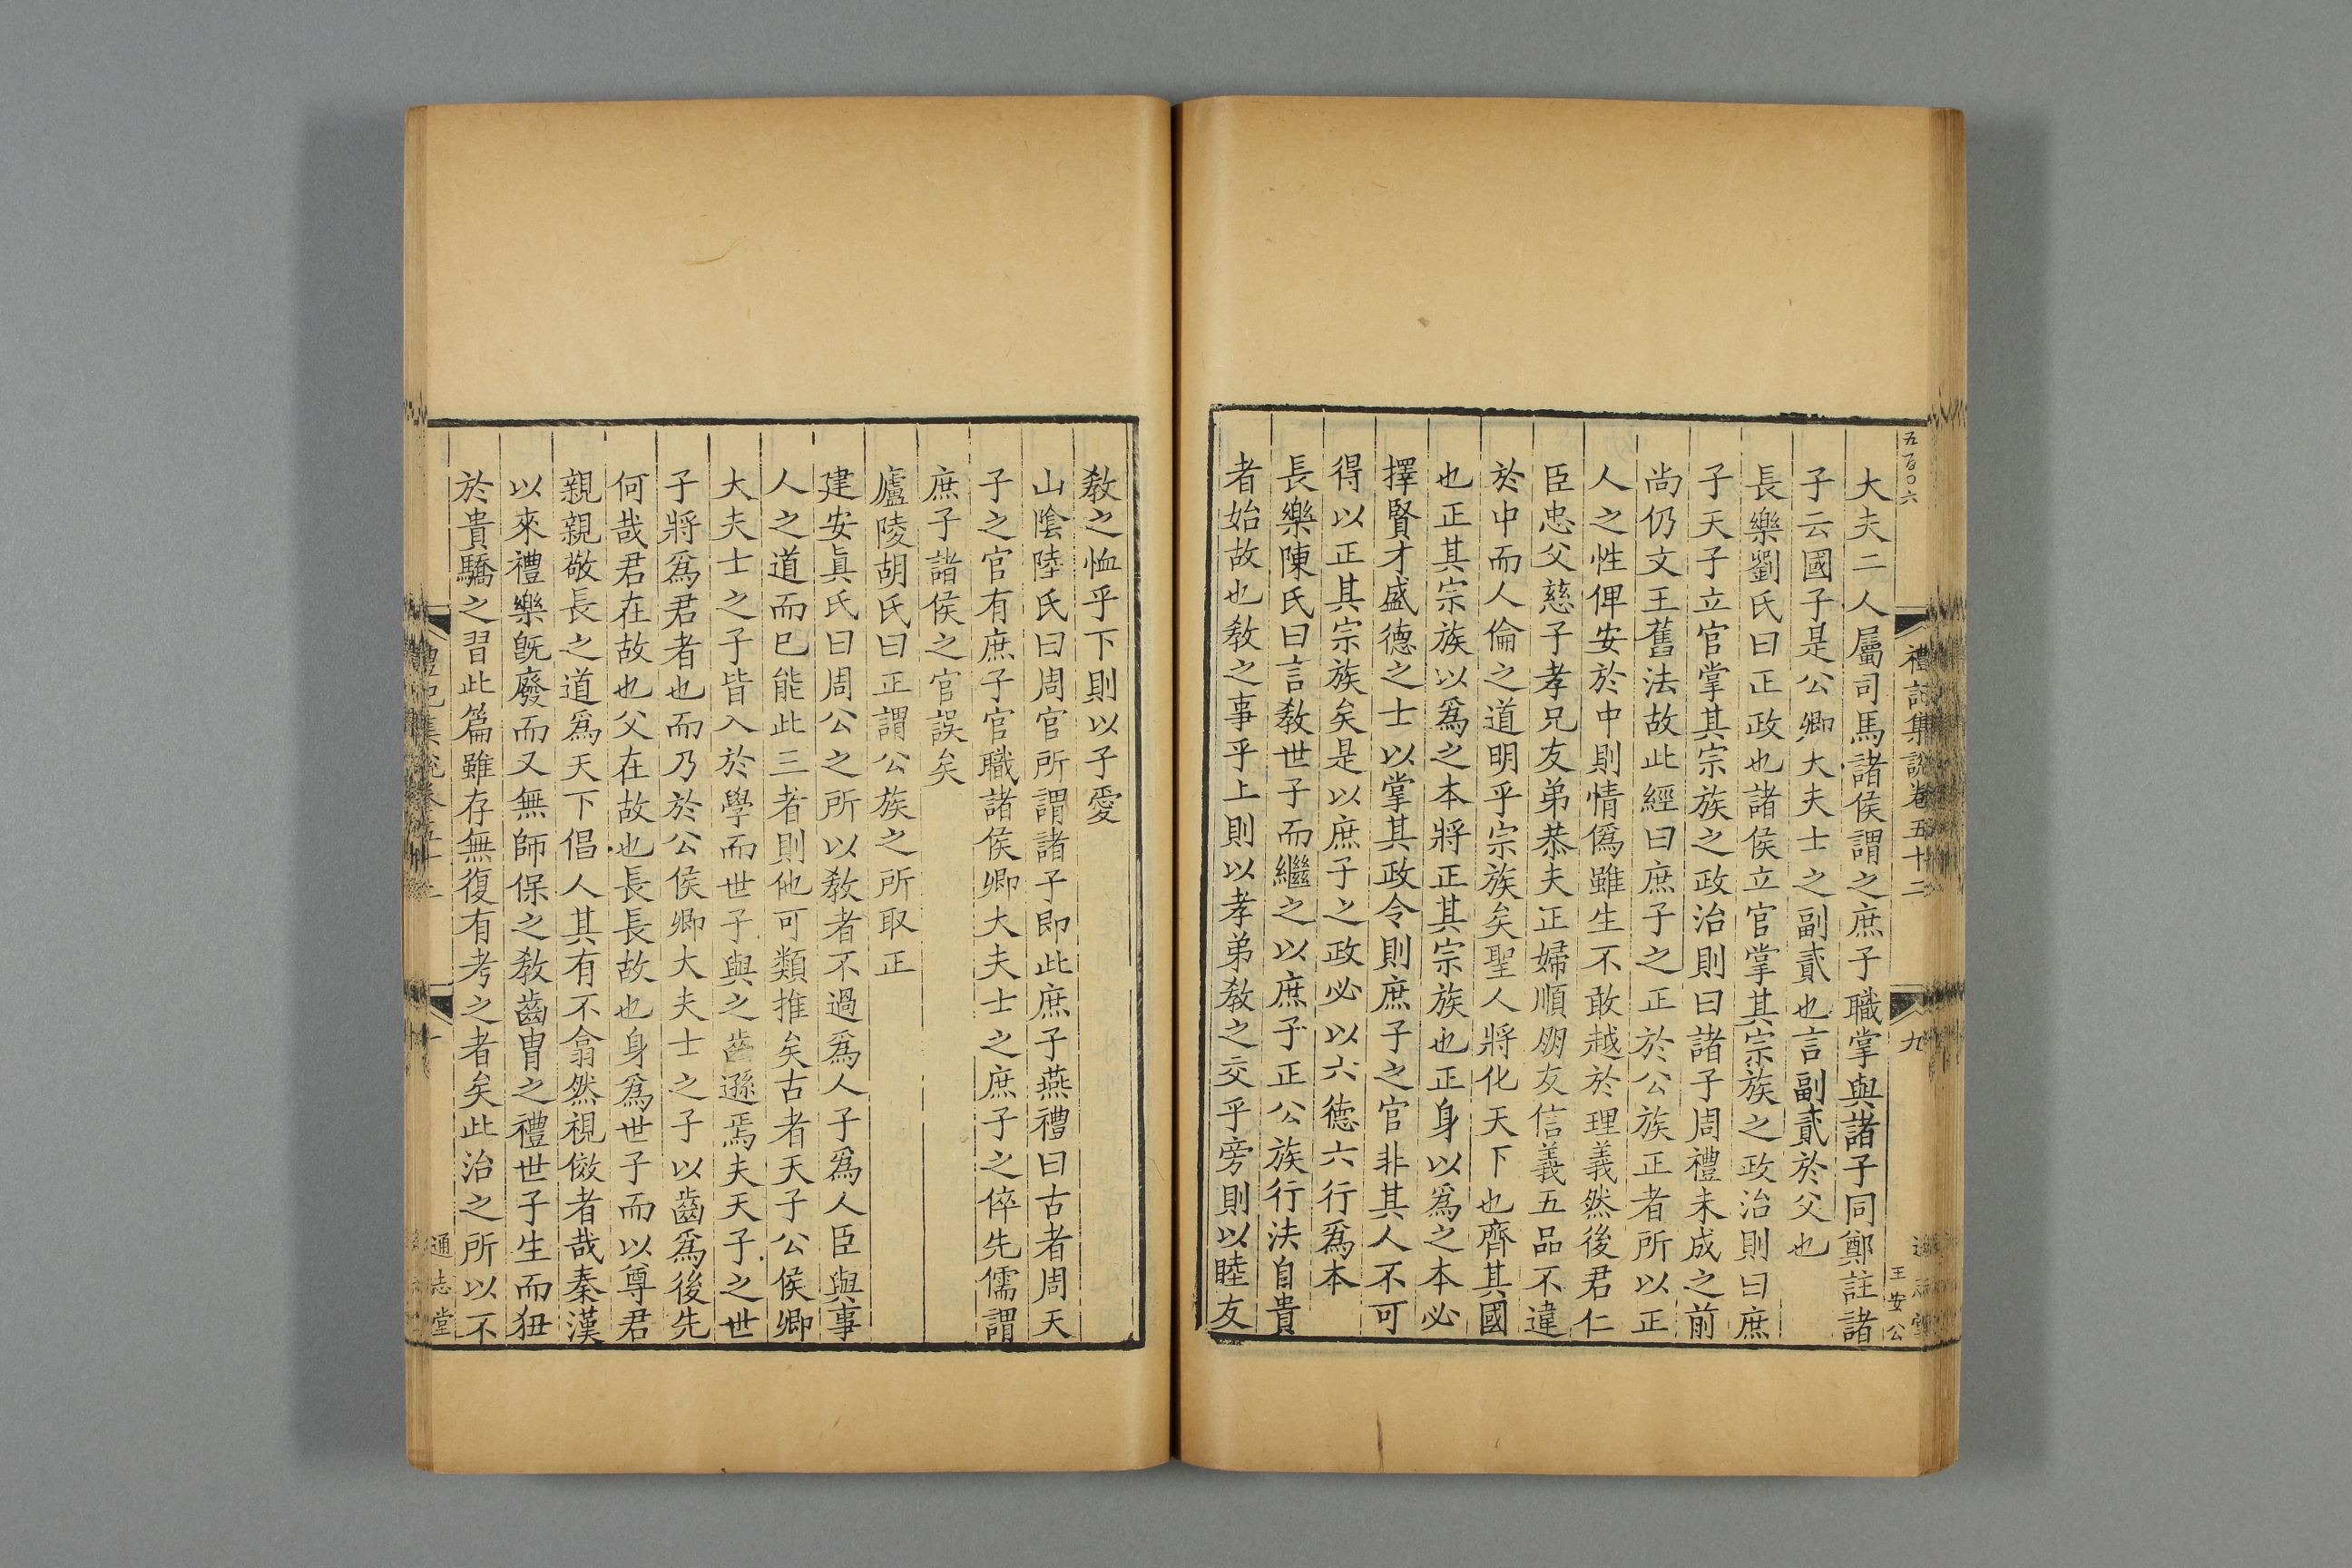 五百〇六
禮記集說卷五十二
九
王安公
大夫二人屬司馬諸侯謂之庶子職掌與諸子同鄭註諸
子云國子是公卿大夫士之副貳也言副貳於父也
長樂劉氏曰正政也諸侯立官掌其宗族之政治則曰庶
子天子立官掌其宗族之政治則曰諸子周禮未成之前
尚仍文王舊法故此經曰庶子之正於公族正者所以正
人之性俾安於中則情僞雖生不敢越於理義然後君仁
臣忠父慈子孝兄友弟恭夫正婦順朋友信義五品不違
於中而人倫之道明乎宗族矣聖人將化天下也齊其國
也正其宗族以爲之本將正其宗族也正身以爲之本必
擇賢才盛德之士以掌其政令則庶子之官非其人不可
得以正其宗族矣是以庶子之政必以六德六行爲本
長樂陳氏曰言敎世子而繼之以庶子正公族行法自貴
者始故也敎之事乎上則以孝弟敎之交乎旁則以睦友
敎之恤乎下則以子愛
山隂陸氏曰周官所謂諸子即此庶子燕禮曰古者周天
子之官有庶子官職諸侯卿大夫士之庶子之倅先儒謂
庶子諸侯之官誤矣
廬陵胡氏曰正謂公族之所取正
建安眞氏曰周公之所以敎者不過爲人子爲人臣與事
人之道而已能此三者則他可類推矣古者天子公侯卿
大夫士之子皆入於學而世子與之齒遜焉夫天子之世
子將爲君者也而乃於公侯卿大夫士之子以齒爲後先
何哉君在故也父在故也長長故也身爲世子而以尊君
親親敬長之道爲天下倡人其有不翕然視傚者哉秦漢
以來禮樂旣廢而又無師保之敎齒胄之禮世子生而狃
於貴驕之習此篇雖存無復有考之者矣此治之所以不
通志堂